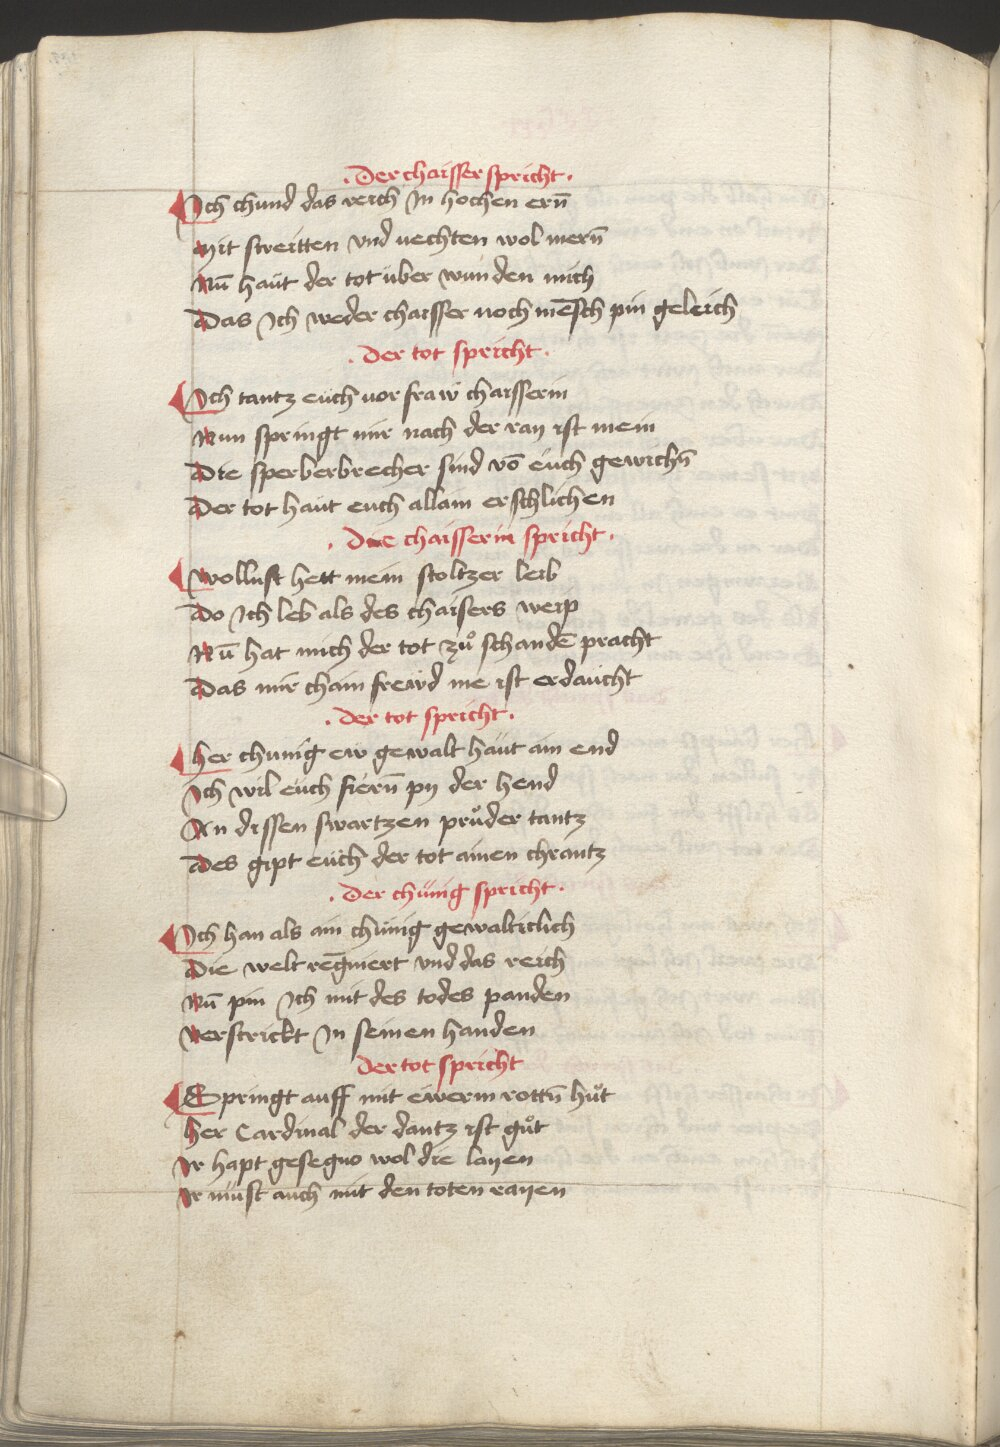 · Der chaisser spricht ·
Ich chund das reich In hochen ern̄
Mit streitten vnd uechten wol mern̄
Nū haut der tot über wunden mich
Das Ich weder chaisser noch mēsch pin geleich
· Der tot spricht ·
Ich tantz eüch uor fraw chaisserin
Nun springt mir nach der ray ist mein
Die sperberbrecher sind vō eüch gewichn̄
Der tot haut euch allain erschlichen
· Die chaisserin spricht ·
Wollust hett mein stoltzer leib
Do Ich leb als des chaisers weip
Nū hat mich der tot zů schandē pracht
Das mir chain frewd me ist erdaücht
· Der tot spricht ·
her chunig ew gewalt haut ain end
Ich wil eüch fiern̄ py der hend
An dissen swartzen průder tantz
Des gipt eüch der tot ainen chrantz
· Der chünig spricht ·
Ich han als ain chünig gewalticlich
Die welt regniert vnd das reich
Nū pin Ich mit des todes panden
Verstrickt In seinen handen
Der tot spricht
Springt auff mit ewerm rottn̄ hůt
her Cardinal der dantz ist gůt
Ir hapt gesegno wol die layen
Ir müst auch mit den toten rayen